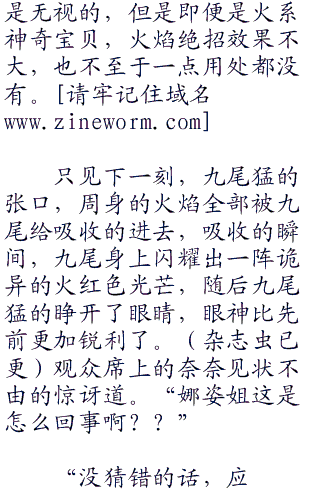 是无视的，但是即便是火系
神奇宝贝，火焰绝招效果不
大，也不至于一点用处都没
有。[请牢记住域名
www.zineworm.com]
只见下一刻，九尾猛的
张口，周身的火焰全部被九
尾给吸收的进去，吸收的瞬
间，九尾身上闪耀出一阵诡
异的火红色光芒，随后九尾
猛的睁开了眼睛，眼神比先
前更加锐利了。（杂志虫已
更）观众席上的奈奈见状不
由的惊讶道。“娜姿姐这是
怎么回事啊？？”
“没猜错的话，应